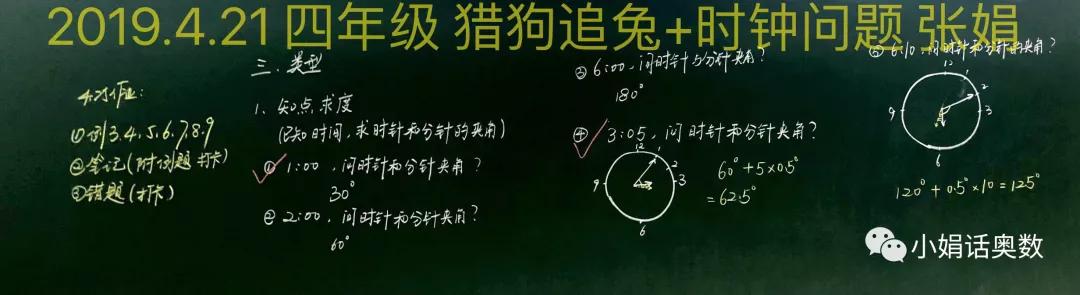 2019.4.21 四年级 猎狗追兔+时钟问题 张娟
本次作业:
①例3.4.5.6.7.8.9
②笔记(附例题 打卡)
③错题(打卡)
三、类型
1、知点求度
(已知时间,求时针和分针的夹角)
① 1:00,问时针和分针夹角?
30°
② 2:00,问时针和分针夹角?
60°
③ 6:00,问时针与分针夹角?
180°
④ 3:05,问时针和分针夹角?
12
1
2
9
3
6
60°+5×0.5°
=62.5°
⑤ 6:10,问时针和分针的夹角?
12
1
2
9
3
6
120°+0.5°×10=125°
小娟话奥数